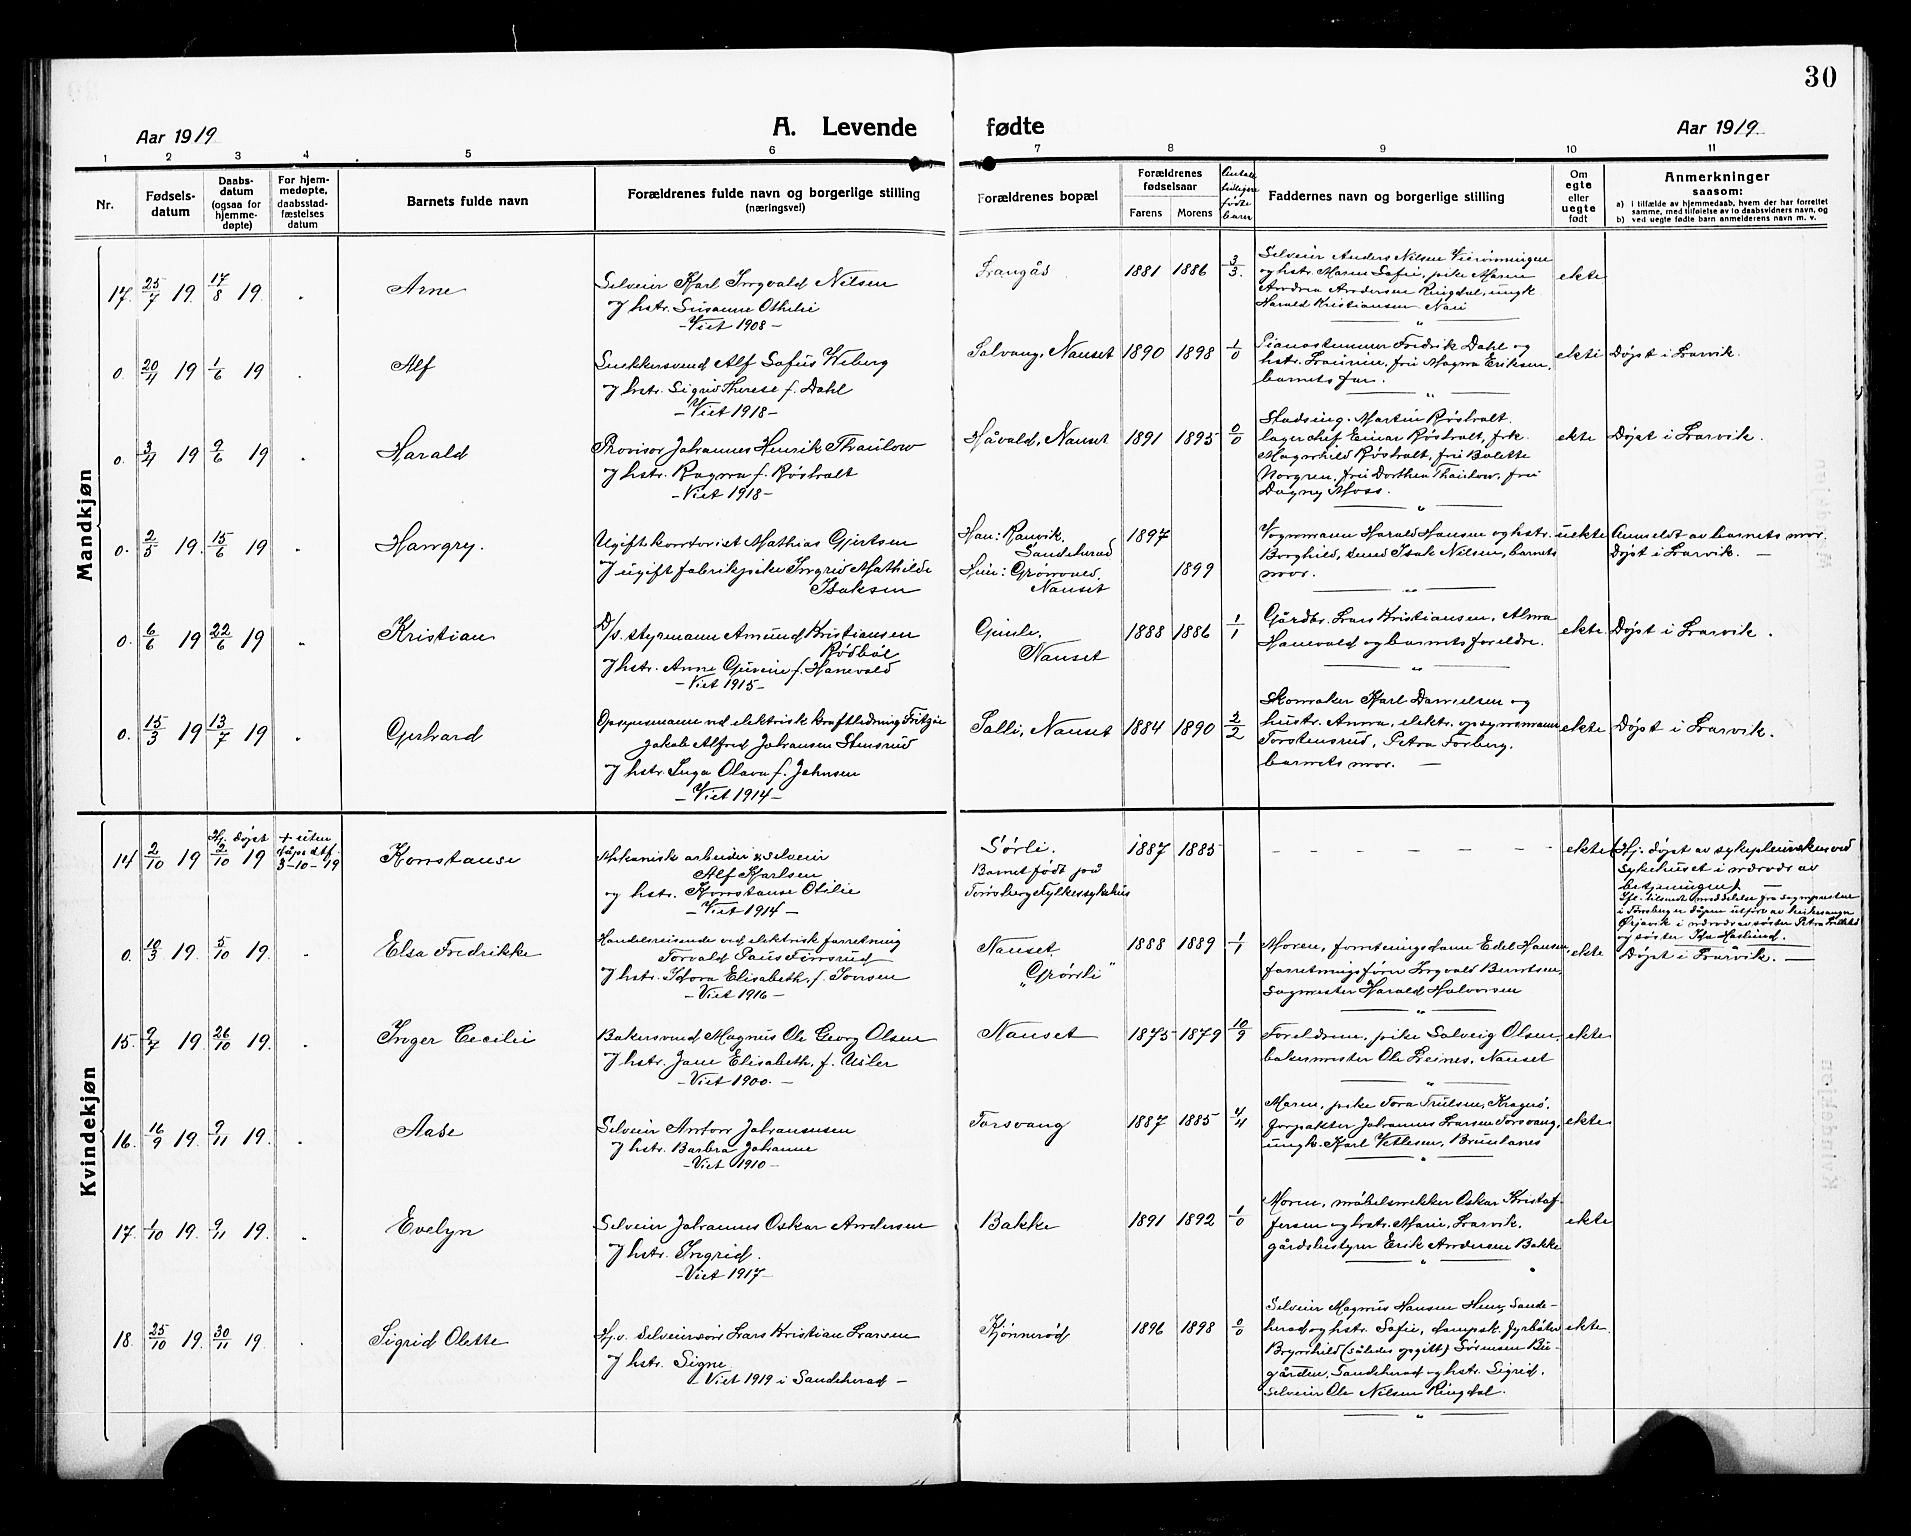 30
Aar 1919
A. Levende
fødte
Aar 1919
1 2 3 4 5 6 7 8 9 10 11
Nr.
Fødsels-
datum
Daabs-
datum
(ogsaa for
hjemme-
døpte)
For hjem-
medøpte,
daabsstad-
fæstelses
datum
Barnets fulde navn
Forældrenes fulde navn og borgerlige stilling
(næringsvei)
Forældrenes bopæl
Forældrenes
fødselsaar
Farens Morens
Antal
tidligere
fødte
barn
Faddernes navn og borgerlige stilling
Om
egte
eller
uegte
født
Anmerkninger
saasom:
a) i tilfælde av hjemmedaab, hvem der har forrettet
samme, med tilføielse av to daabsvidners navn, og
b) ved uegte fødte barn anmelderens navn m. v.
Mandkjøn
17 25/7 19 17/8 19 Arne
Selveier Karl Ingvald Nilsen
J hstr. Susanne Othilie
- Viet 1908 -
1881 1886 3/3
Selveier Anders Nilsen
og hstr. Maren Sofie, pike Maren
Andrea Andersen Ringdal, ungk.
Harald Kristiansen
ekte
0. 20/4 19 1/6 19 Alf
Snekkersvend Alf Sofus Wiberg
J hstr. Sigrid Therese f. Dahl
- Viet 1918 -
Solvang, Nanset 1890 1898 1/0
Pianostemmer Fridrik Dahl og
hstr. Laurine, fru Magna Eriksen,
barnets far.
ekte Døpt i Larvik.
0. 3/4 19 9/6 19 Harald
Provisor Johannes Henrik Thaulow
J hstr. Ragna f. Røsholt
- Viet 1918 -
Håvald, Nanset 1891 1895 0/0
Martin Røsholt,
lagerchef Einar Røsholt, frk.
Magnhild Røsholt, fru Bolette
Norgren, fru Dorthea Thaulow, fru
Dagny Moss.
ekte Døpt i Larvik.
0. 2/5 19. 15/6 19
Ugift kontorist Mathias Gjertsen
J ugift fabrikpike Ingrid Mathilde
Isaksen
Han: Ranvik,
Sandeherad
Hun: Grønvold,
Nanset
1897
1899
Vognmann Harald Hansen og hstr.
Borghild, Isak Nilsen, barnets
mor.
uekte Anmeldt av barnets mor.
Døpt i Larvik. —
0. 6/6 19 22/6 19 Kristian
D/s. styrmann Amund Kristiansen
Rødbøl
J hstr. Anne f. Hanevold
- Viet 1915 -
Gimle,
Nanset
1888 1886 1/1
Gårdbr. Lars Kristiansen, Alma
Hanevold og barnets foreldre.
ekte Døpt i Larvik.
0. 15/3 19 13/7 19 Gerhard
Opsynsmann ved elektrisk kraftledning Fritzøe
Jakob Alfred Johansen Stensrud
J hstr. Inga Olava f. Johnsen
- Viet 1914 -
Solli, Nanset 1884 1890 2/2
Skomaker Karl Danielsen og
hustr. Anna, elektr. opsynsmann
Torstensrud, Petra Forberg,
barnets mor. —
ekte Døpt i Larvik.
Kvindekjøn
14 2/10 19 Hj. døpt 2/10 19
+ uten
dåps stf.
3-10-19
Konstanse
Mekanisk arbeider & selveier
Alf Karlsen
og hstr. Konstanse Otilie
- Viet 1914 -
Sørli.
Barnet født på
Tønsberg Fylkessykehus
1887 1885
— — — — — — —
ekte
(Hj. døpt av sykepleierske ved
sykehuset i nærvær av
betjeningen). —
0. 10/3 19. 5/10 19 Elsa Fredrikke
Handelsreisende ved elektrisk forretning
Torvald Paus Finsrud
J hstr. Thora Elisabeth, f. Iversen
- Viet 1916 -
Nanset.
"Grønli"
1888 1889 1/1
Moren, forretningsdame Edel Hansen,
forretningsfører Ingvald Berntsen,
sagmester Harald Halvorsen
ekte Døpt i Larvik. —
15. 9/7 19 26/10 19. Inger Cecilie
Bakersvend Magnus Ole Georg Olsen
J hstr. Jane Elisabeth, f. Usler
- Viet 1900. -
Nanset 1875 1879 10/9
Foreldrene, pike Solveig Olsen,
bakermester Ole Reines, Nanset
ekte
16. 16/9 19. 9/11 19. Aase
Selveier Anton Johannesen
J hstr. Barbra Johanne
- Viet 1910 -
Torsvang 1887 1885 4/4
Moren, pike Tora Trulsen, Kragerø,
forpakter Johannes Larsen Torsvang,
ungk. Karl Vetlesen, Brunlanes
ekte
17. 1/10 19. 9/11 19. Evelyn
Selveier Johannes Oskar Andersen
J hstr. Ingrid.
- Viet 1917 -
Bakke 1891 1892 1/0
Moren, møbelsnekker Oskar Kristof-
fersen og hstr. Marie, Larvik.
gårdsbestyrer Erik Andersen Bakke
ekte
18. 25/10 19. 30/11 19. Sigrid Olette
Hj.v. Selveiersøn Lars Kristian Larsen
J hstr. Signe
- Viet 1919 i Sandeherad -
Kjønnerød 1896 1898 0/0
Selveier Magnus Hansen Hem, Sande-
herad og hstr. Sofie, dampsk. fyrbøter
Brynhild (således opgitt) Sørensen Bu-
gården, Sandeherad og hstr. Sigrid.
Selveier Ole Nilsen Ringdal.
ekte.